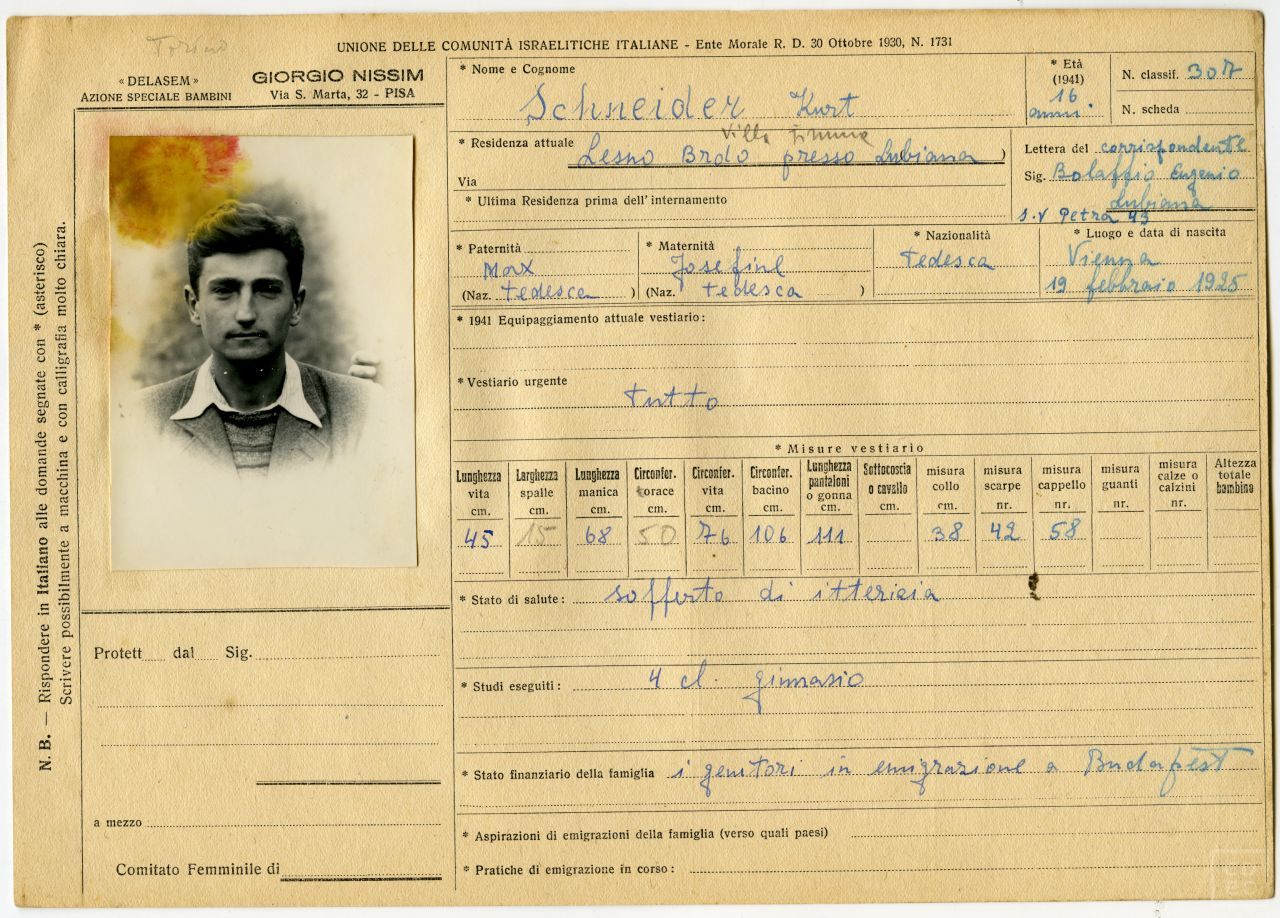 Torino
UNIONE DELLE COMUNITÀ ISRAELITICHE ITALIANE - Ente Morale R. D. 30 Ottobre 1930, N. 1731
« DELASEM »
AZIONE SPECIALE BAMBINI
GIORGIO NISSIM
Via S. Marta, 32 - PISA
N. B. — Rispondere in Italiano alle domande segnate con * (asterisco)
Scrivere possibilmente a macchina e con calligrafia molto chiara.
* Nome e Cognome
Schneider Kurt
* Età
(1941)
16
anni
N. classif. 307
N. scheda
* Residenza attuale Lesno Brdo presso Lubiana )
Villa
Via
* Ultima Residenza prima dell'internamento
Lettera del corrispondente
Sig. Bolaffio Eugenio
Lubiana
s.v Petra 43
* Paternità
Max
(Naz. tedesca )
* Maternità
Josefine
(Naz. tedesca )
* Nazionalità
tedesca
* Luogo e data di nascita
Vienna
19 febbraio 1925
* 1941 Equipaggiamento attuale vestiario:
* Vestiario urgente
tutto
* Misure vestiario
Lunghezza vita cm. 45
Larghezza spalle cm. 15
Lunghezza manica cm. 68
Circonfer. torace cm. 50
Circonfer. vita cm. 76
Circonfer. bacino cm. 106
Lunghezza pantaloni o gonna cm. 111
Sottocoscia o cavallo cm.
misura collo cm. 38
misura scarpe nr. 42
misura cappello nr. 58
misura guanti nr.
misura calze o calzini nr.
Altezza totale bambino
* Stato di salute: sofferto di itterizia
* Studi eseguiti: 4 cl. ginnasio
* Stato finanziario della famiglia i genitori in emigrazione a Budapest
* Aspirazioni di emigrazioni della famiglia (verso quali paesi)
* Pratiche di emigrazione in corso:
Protett dal Sig.
a mezzo
Comitato Femminile di